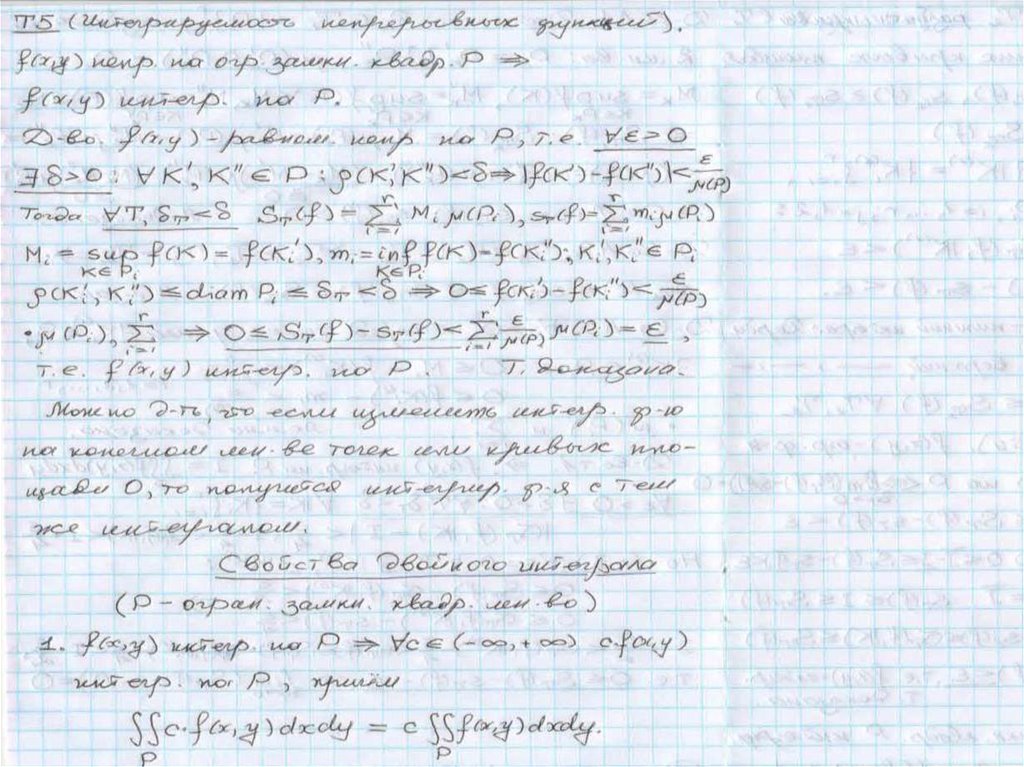 Т5 (Интегрируемость непрерывных функций).
f(x,y) непр. на огр. замкн. квадр. P ⇒
f(x,y) интегр. по P.
Д-во. f(x,y) - равном. непр. на P, т.е. ∀ε>0
∃δ>0: ∀K', K'' ∈ P: ρ(K',K'')<δ ⇒ |f(K')-f(K'')|< ε/μ(P)
Тогда ∀T, δ_T<δ S_T(f) = ∑_{i=1}^{r} M_i μ(P_i), s_T(f)= ∑_{i=1}^{r} m_i μ(P_i)
M_i = sup_{K∈P_i} f(K) = f(K_i'), m_i = inf_{K∈P_i} f(K) = f(K_i''); K_i', K_i'' ∈ P_i
ρ(K_i', K_i'') ≤ diam P_i ≤ δ_T < δ ⇒ 0 ≤ f(K_i') - f(K_i'') < ε/μ(P)
• μ(P_i), ∑_{i=1}^{r} ⇒ 0 ≤ S_T(f) - s_T(f) < ∑_{i=1}^{r} ε/μ(P) μ(P_i) = ε,
т.е. f(x,y) интегр. по P. Т. доказана.
Можно д-ть, что если изменить интегр. ф-ю
на конечном мн-ве точек или кривых пло-
щади 0, то получится интегрир. ф-я с тем
же интегралом.
Свойства двойного интеграла
(P - огран. замкн. квадр. мн-во)
1. f(x,y) интегр. по P ⇒ ∀c ∈ (-∞, +∞) c·f(x,y)
интегр. по P, причём
∬_P c·f(x,y) dxdy = c ∬_P f(x,y) dxdy.